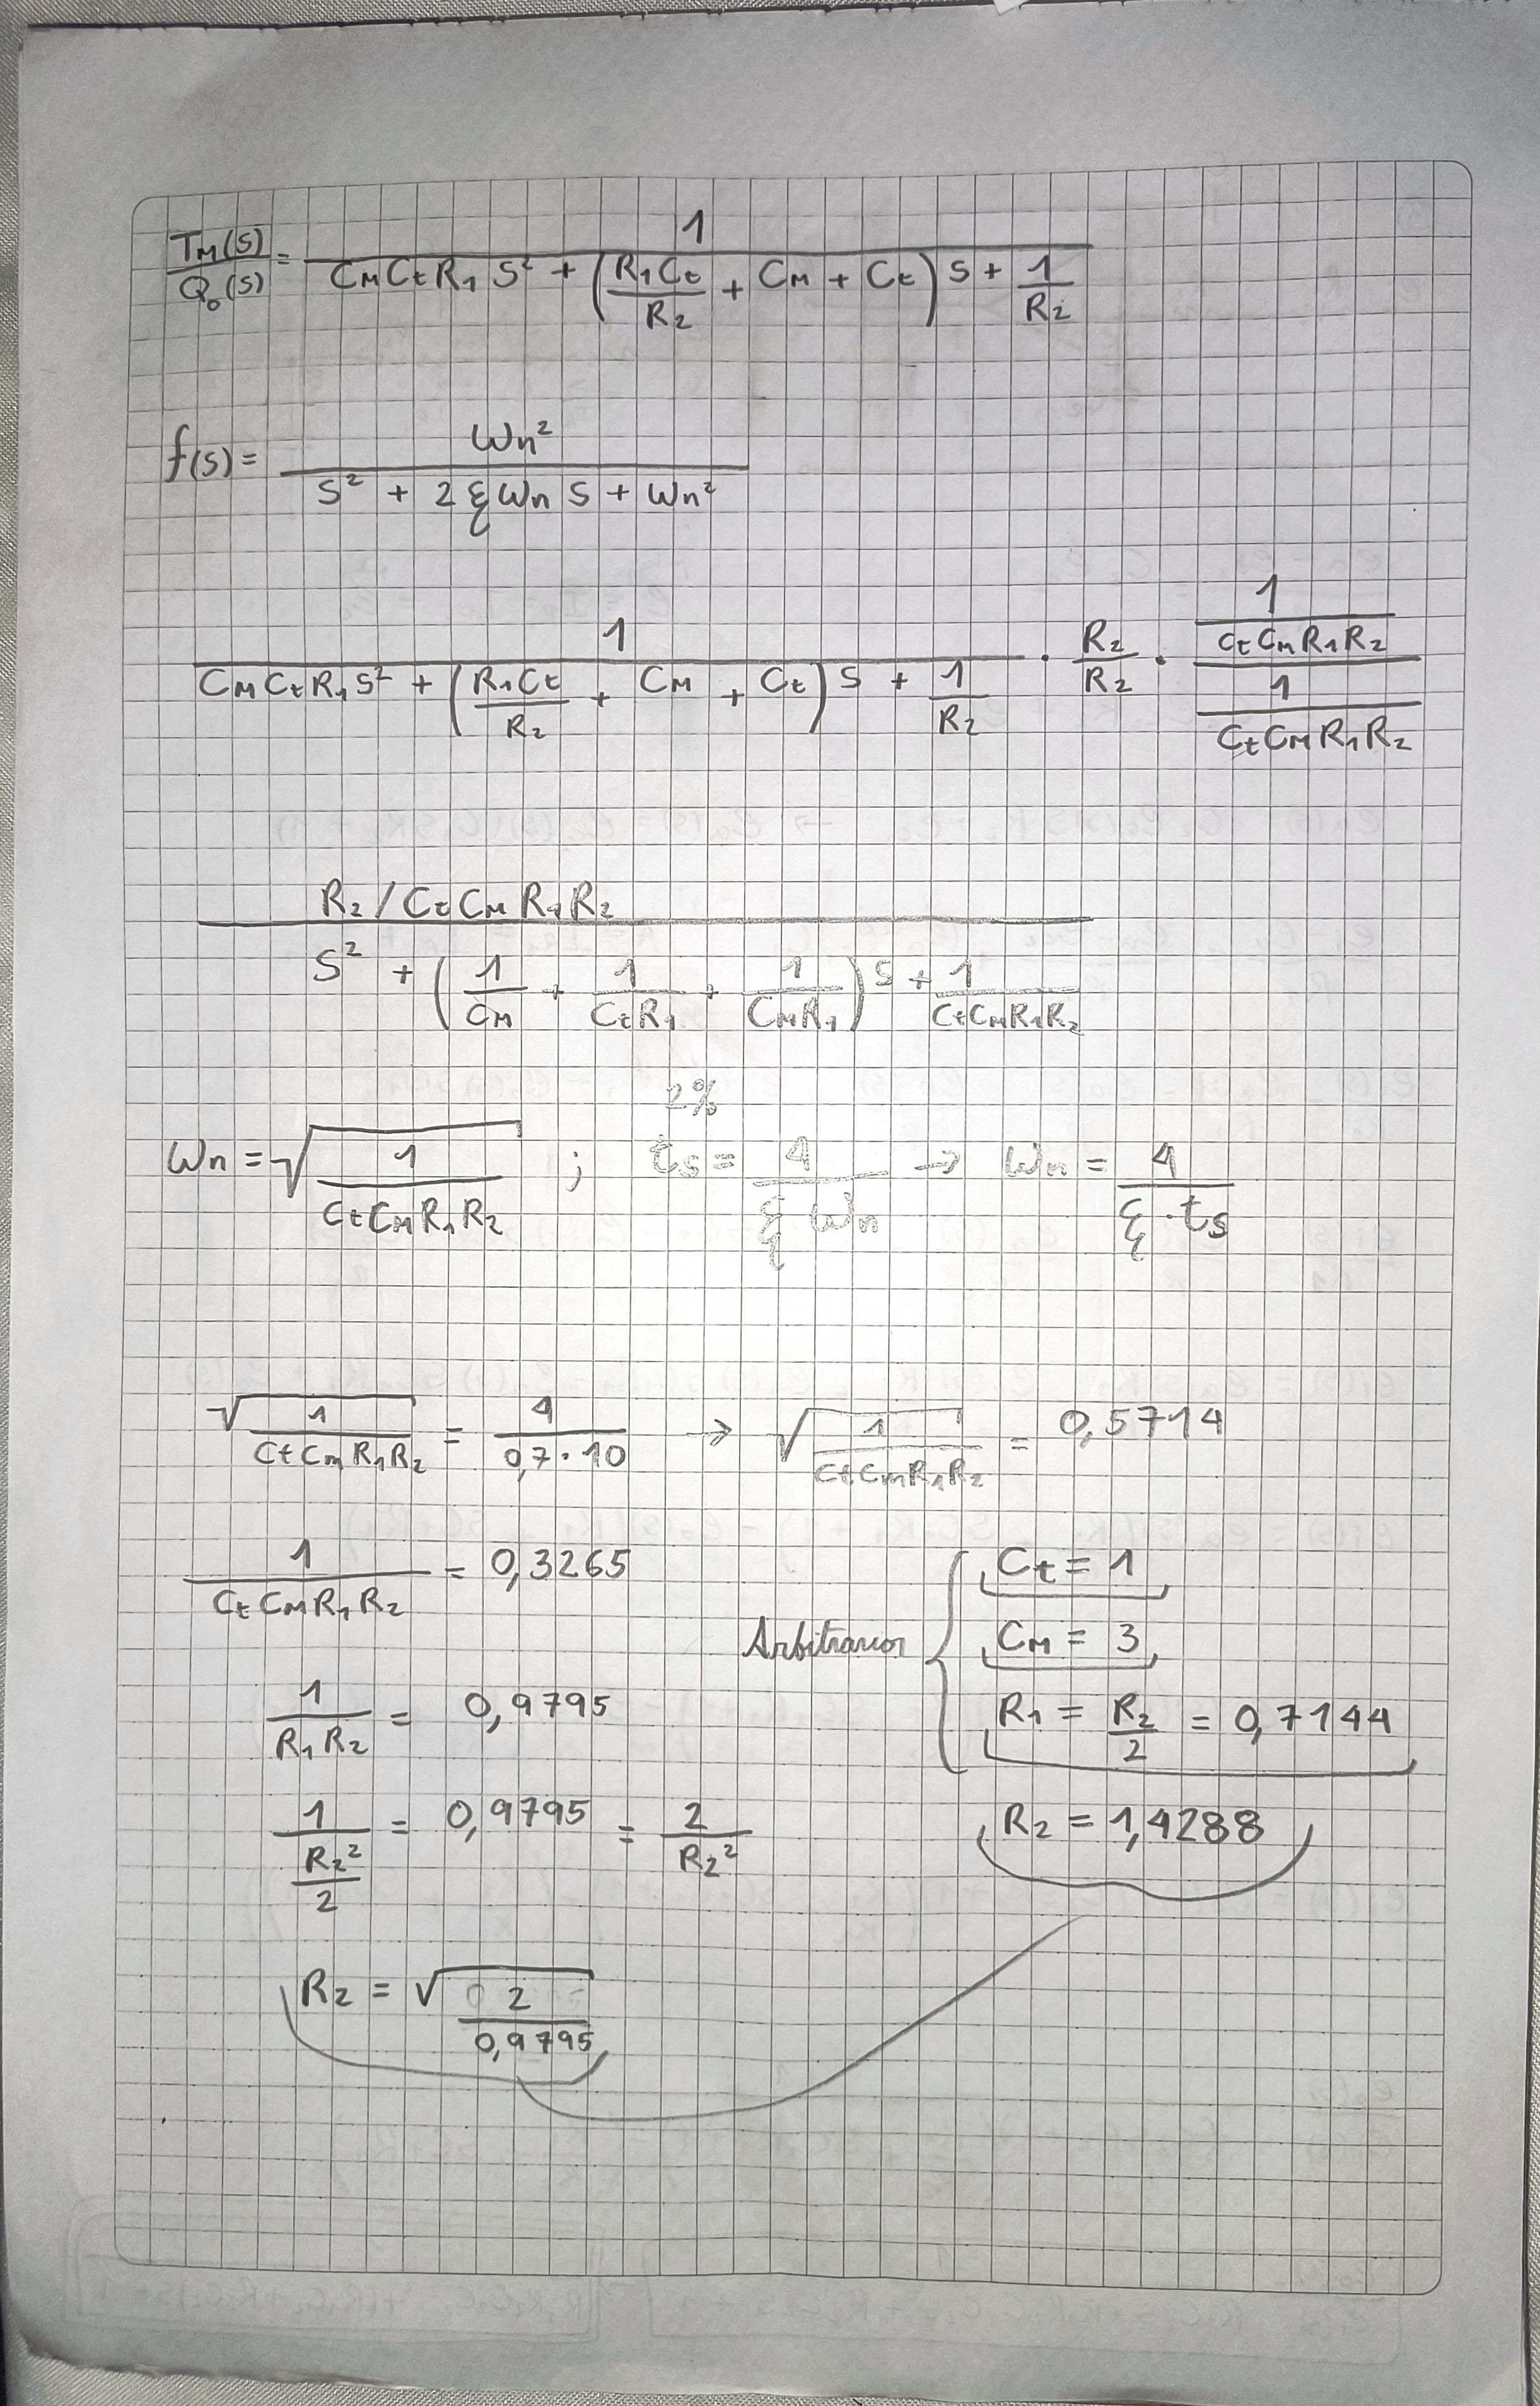 TM(S)/Qo(S) = 1 / (CM Ct R1 S² + (R1 Ct/R2 + CM + Ct) S + 1/R2)
f(s) = Wn² / (S² + 2 ξ Wn S + Wn²)
1 / (CM Ct R1 S² + (R1 Ct/R2 + CM + Ct) S + 1/R2) · R2/R2 · (1/(Ct Cm R1 R2)) / (1/(Ct CM R1 R2))
(R2 / Ct CM R1 R2) / (S² + (1/CM + 1/(Ct R1) + 1/(CM R1)) S + 1/(Ct CM R1 R2))
2%
Wn = √(1/(Ct CM R1 R2)) ; ts = 4/(ξ Wn) → Wn = 4/(ξ · ts)
√(1/(Ct Cm R1 R2)) = 4/(0,7 · 10) → √(1/(Ct Cm R1 R2)) = 0,5714
1/(Ct CM R1 R2) = 0,3265
Ct = 1
Arbitrarios { CM = 3
1/(R1 R2) = 0,9795
R1 = R2/2 = 0,7144
1/(R2²/2) = 0,9795 = 2/R2²
R2 = 1,4288
R2 = √(2/0,9795)